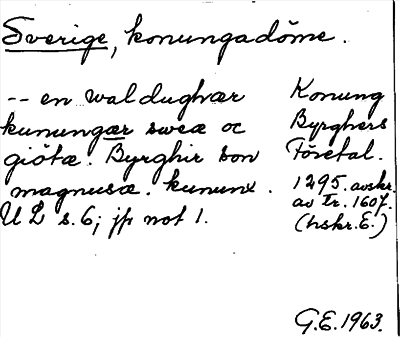 Sverige, konungadöme.
-- en waldughær
kunungær sweæ oc
giötæ. Byrghir son
magnusæ. kununx.
U L s. 6; jfr not 1.
Konung
Byrghers
Företal.
1295. avskr.
av tr. 1607.
(hskr. E.)
G.E. 1963.